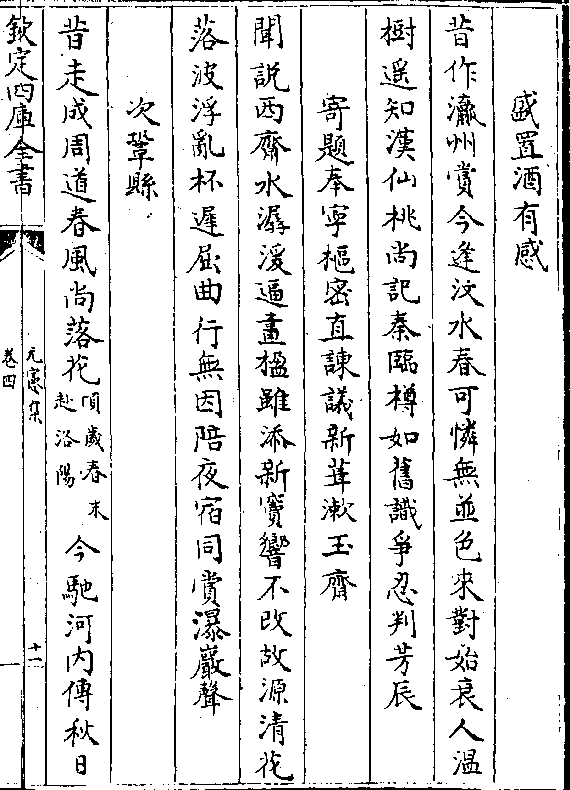 盛置酒有感
昔作瀛州賞今逢汶水春可憐無並色來對始衰人温
樹遥知漢仙桃尚記秦臨樽如舊識爭忍判芳辰
寄題奉寧樞密直諫議新葺漱玉齋
聞說西齋水潺湲逼畫楹雖添新竇響不改故源清花
落波浮亂杯遲屈曲行無因陪夜宿同賞瀑巖聲
次鞏縣
昔走成周道春風尚落花頃歲春末赴洛陽今馳河内傳秋日
欽定四庫全書
元憲集
卷四
十一